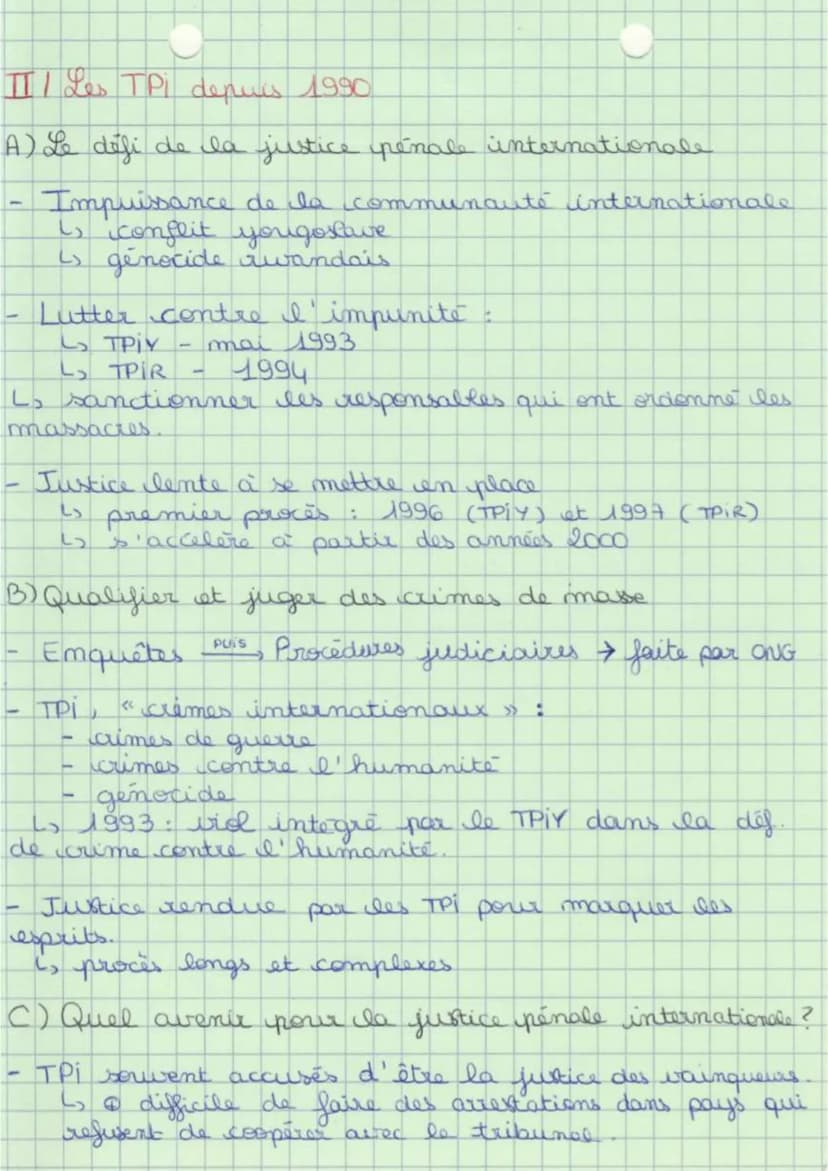 II / Les TPi depuis 1990
A) Le défi de la justice pénale internationale
- Impuissance de la communauté internationale
↳ conflit yougoslave
↳ génocide rwandais
- Lutter contre l'impunité :
↳ TPiY - mai 1993
↳ TPiR - 1994
↳ sanctionner les responsables qui ont ordonné les
massacres.
- Justice lente à se mettre en place
↳ premier procès : 1996 (TPiY) et 1997 (TPiR)
↳ s'accélère à partir des années 2000
B) Qualifier et juger des crimes de masse
- Emquêtes puis → Procédures judiciaires → faite par ONG
- TPi, « crimes internationaux » :
- crimes de guerre
- crimes contre l'humanité
- génocide
↳ 1993 : viol integré par le TPiY dans la déf.
de crime contre l'humanité.
- Justice rendue par les TPi pour marquer les
esprits.
↳ procès longs et complexes
C) Quel avenir pour la justice pénale internationale ?
- TPi souvent accusés d'être la justice des vainqueurs.
↳ ⊕ difficile de faire des arrestations dans pays qui
refusent de coopérer avec le tribunal.